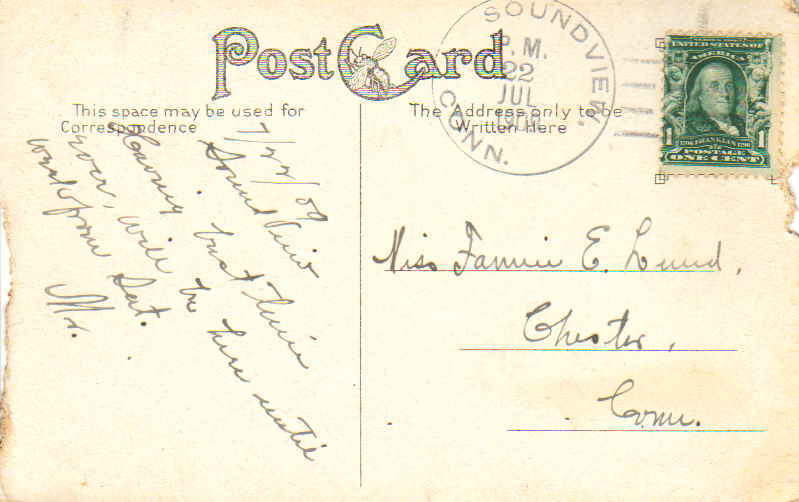 Post Card
SOUNDVIEW,
CONN.
P.M.
22
JUL
UNITED STATES OF
AMERICA
1706 FRANKLIN 1790
1 POSTAGE 1
ONE CENT
This space may be used for
Correspondence
The Address only to be
Written Here
7/22/09
Sound View
Having best time
ever, will be here until
week from Sat.
Miss Fannie E. Lund,
Chester,
Conn.